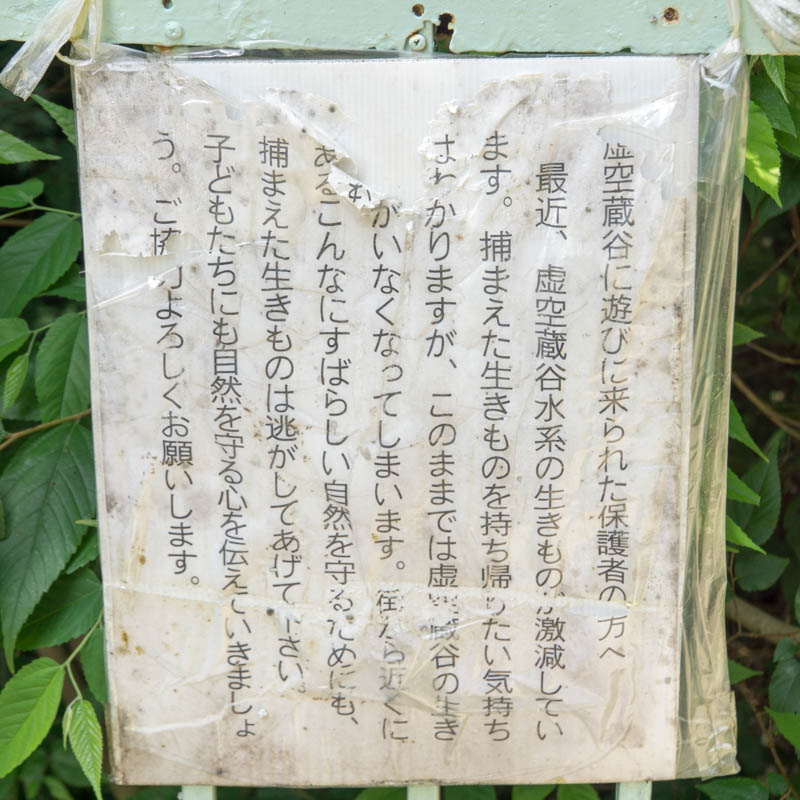 虚空蔵谷に遊びに来られた保護者の方へ
最近、虚空蔵谷水系の生きものが激減してい
ます。捕まえた生きものを持ち帰りたい気持ち
はわかりますが、このままでは虚空蔵谷の生き
がいなくなってしまいます。街から近くに
あるこんなにすばらしい自然を守るためにも、
捕まえた生きものは逃がしてあげて下さい。
子どもたちにも自然を守る心を伝えていきましょ
う。ご協力よろしくお願いします。